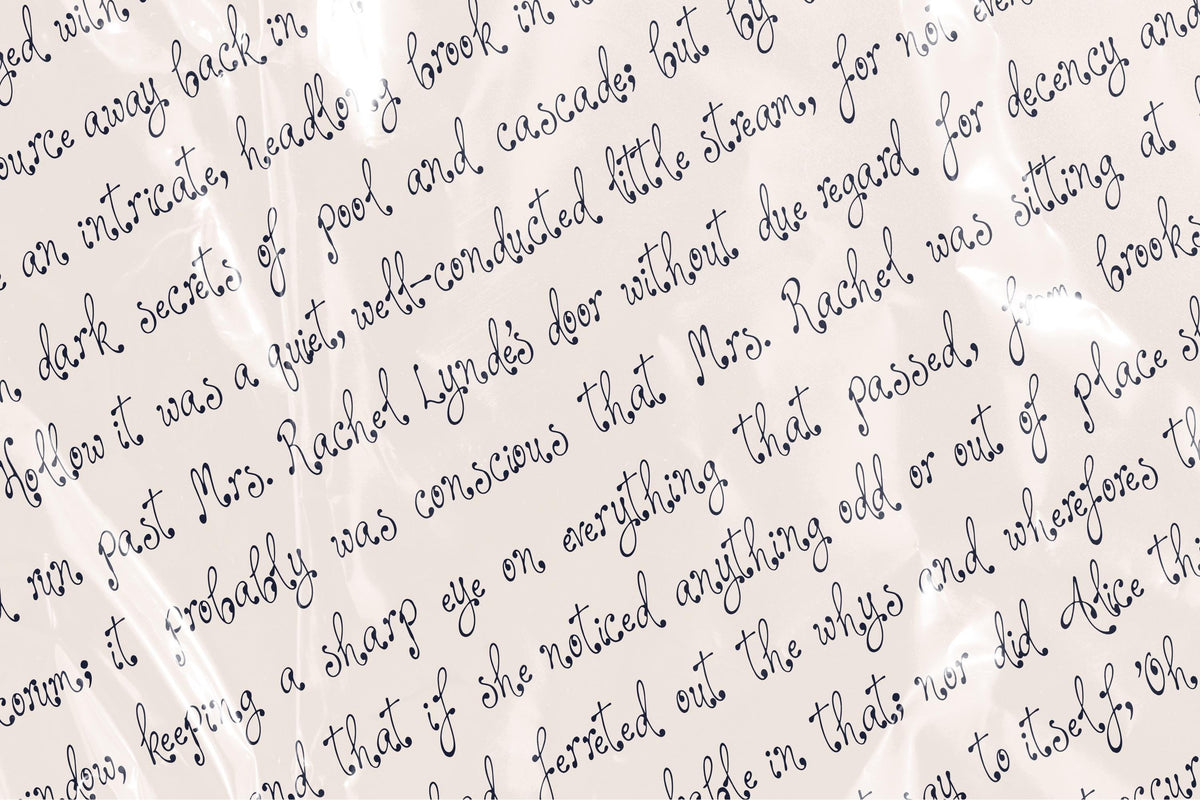 ged with
ource away back in
e an intricate, headlong brook in it
h dark secrets of pool and cascade; but by
Hollow it was a quiet, well-conducted little stream, for not even
d run past Mrs. Rachel Lynde's door without due regard for decency and
corum; it probably was conscious that Mrs. Rachel was sitting at
indow, keeping a sharp eye on everything that passed, from brooks
and that if she noticed anything odd or out of place s
d ferreted out the whys and wherefores th
kable in that; nor did Alice th
ay to itself, 'Oh,
occur